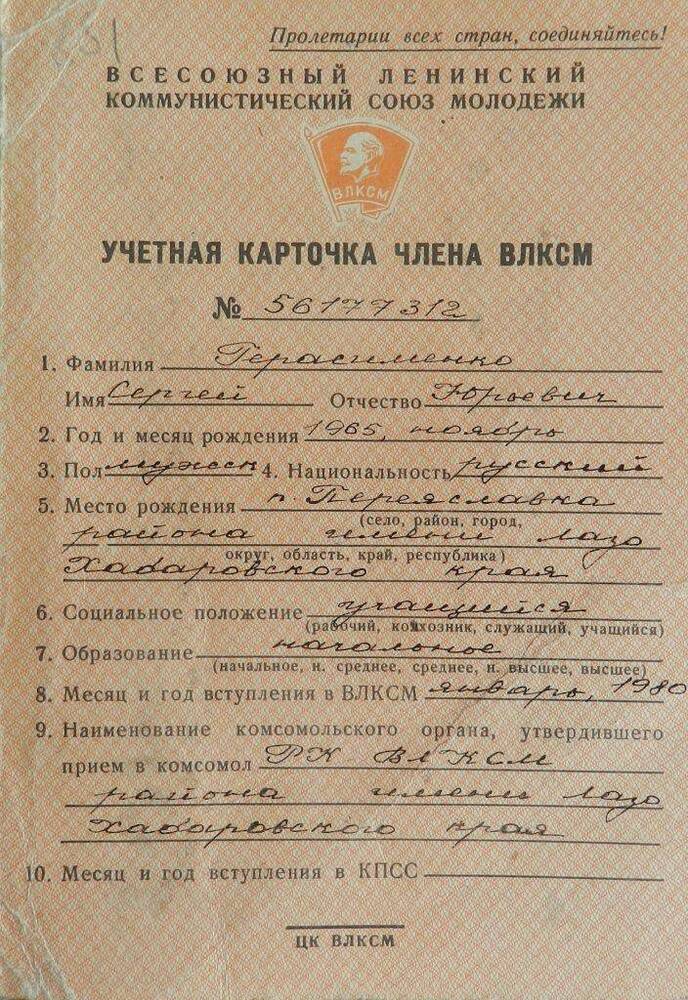 Пролетарии всех стран, соединяйтесь!
ВСЕСОЮЗНЫЙ ЛЕНИНСКИЙ
КОММУНИСТИЧЕСКИЙ СОЮЗ МОЛОДЕЖИ
ВЛКСМ
УЧЕТНАЯ КАРТОЧКА ЧЛЕНА ВЛКСМ
№ 56177312
1. Фамилия Герасименко
Имя Сергей Отчество Юрьевич
2. Год и месяц рождения 1965, ноябрь
3. Пол мужск 4. Национальность русский
5. Место рождения п. Переяславка
(село, район, город,
района имени Лазо
округ, область, край, республика)
Хабаровского края
6. Социальное положение учащийся
(рабочий, колхозник, служащий, учащийся)
7. Образование начальное
(начальное, н. среднее, среднее, н. высшее, высшее)
8. Месяц и год вступления в ВЛКСМ январь, 1980
9. Наименование комсомольского органа, утвердившего
прием в комсомол РК ВЛКСМ
района имени Лазо
Хабаровского края
10. Месяц и год вступления в КПСС
ЦК ВЛКСМ